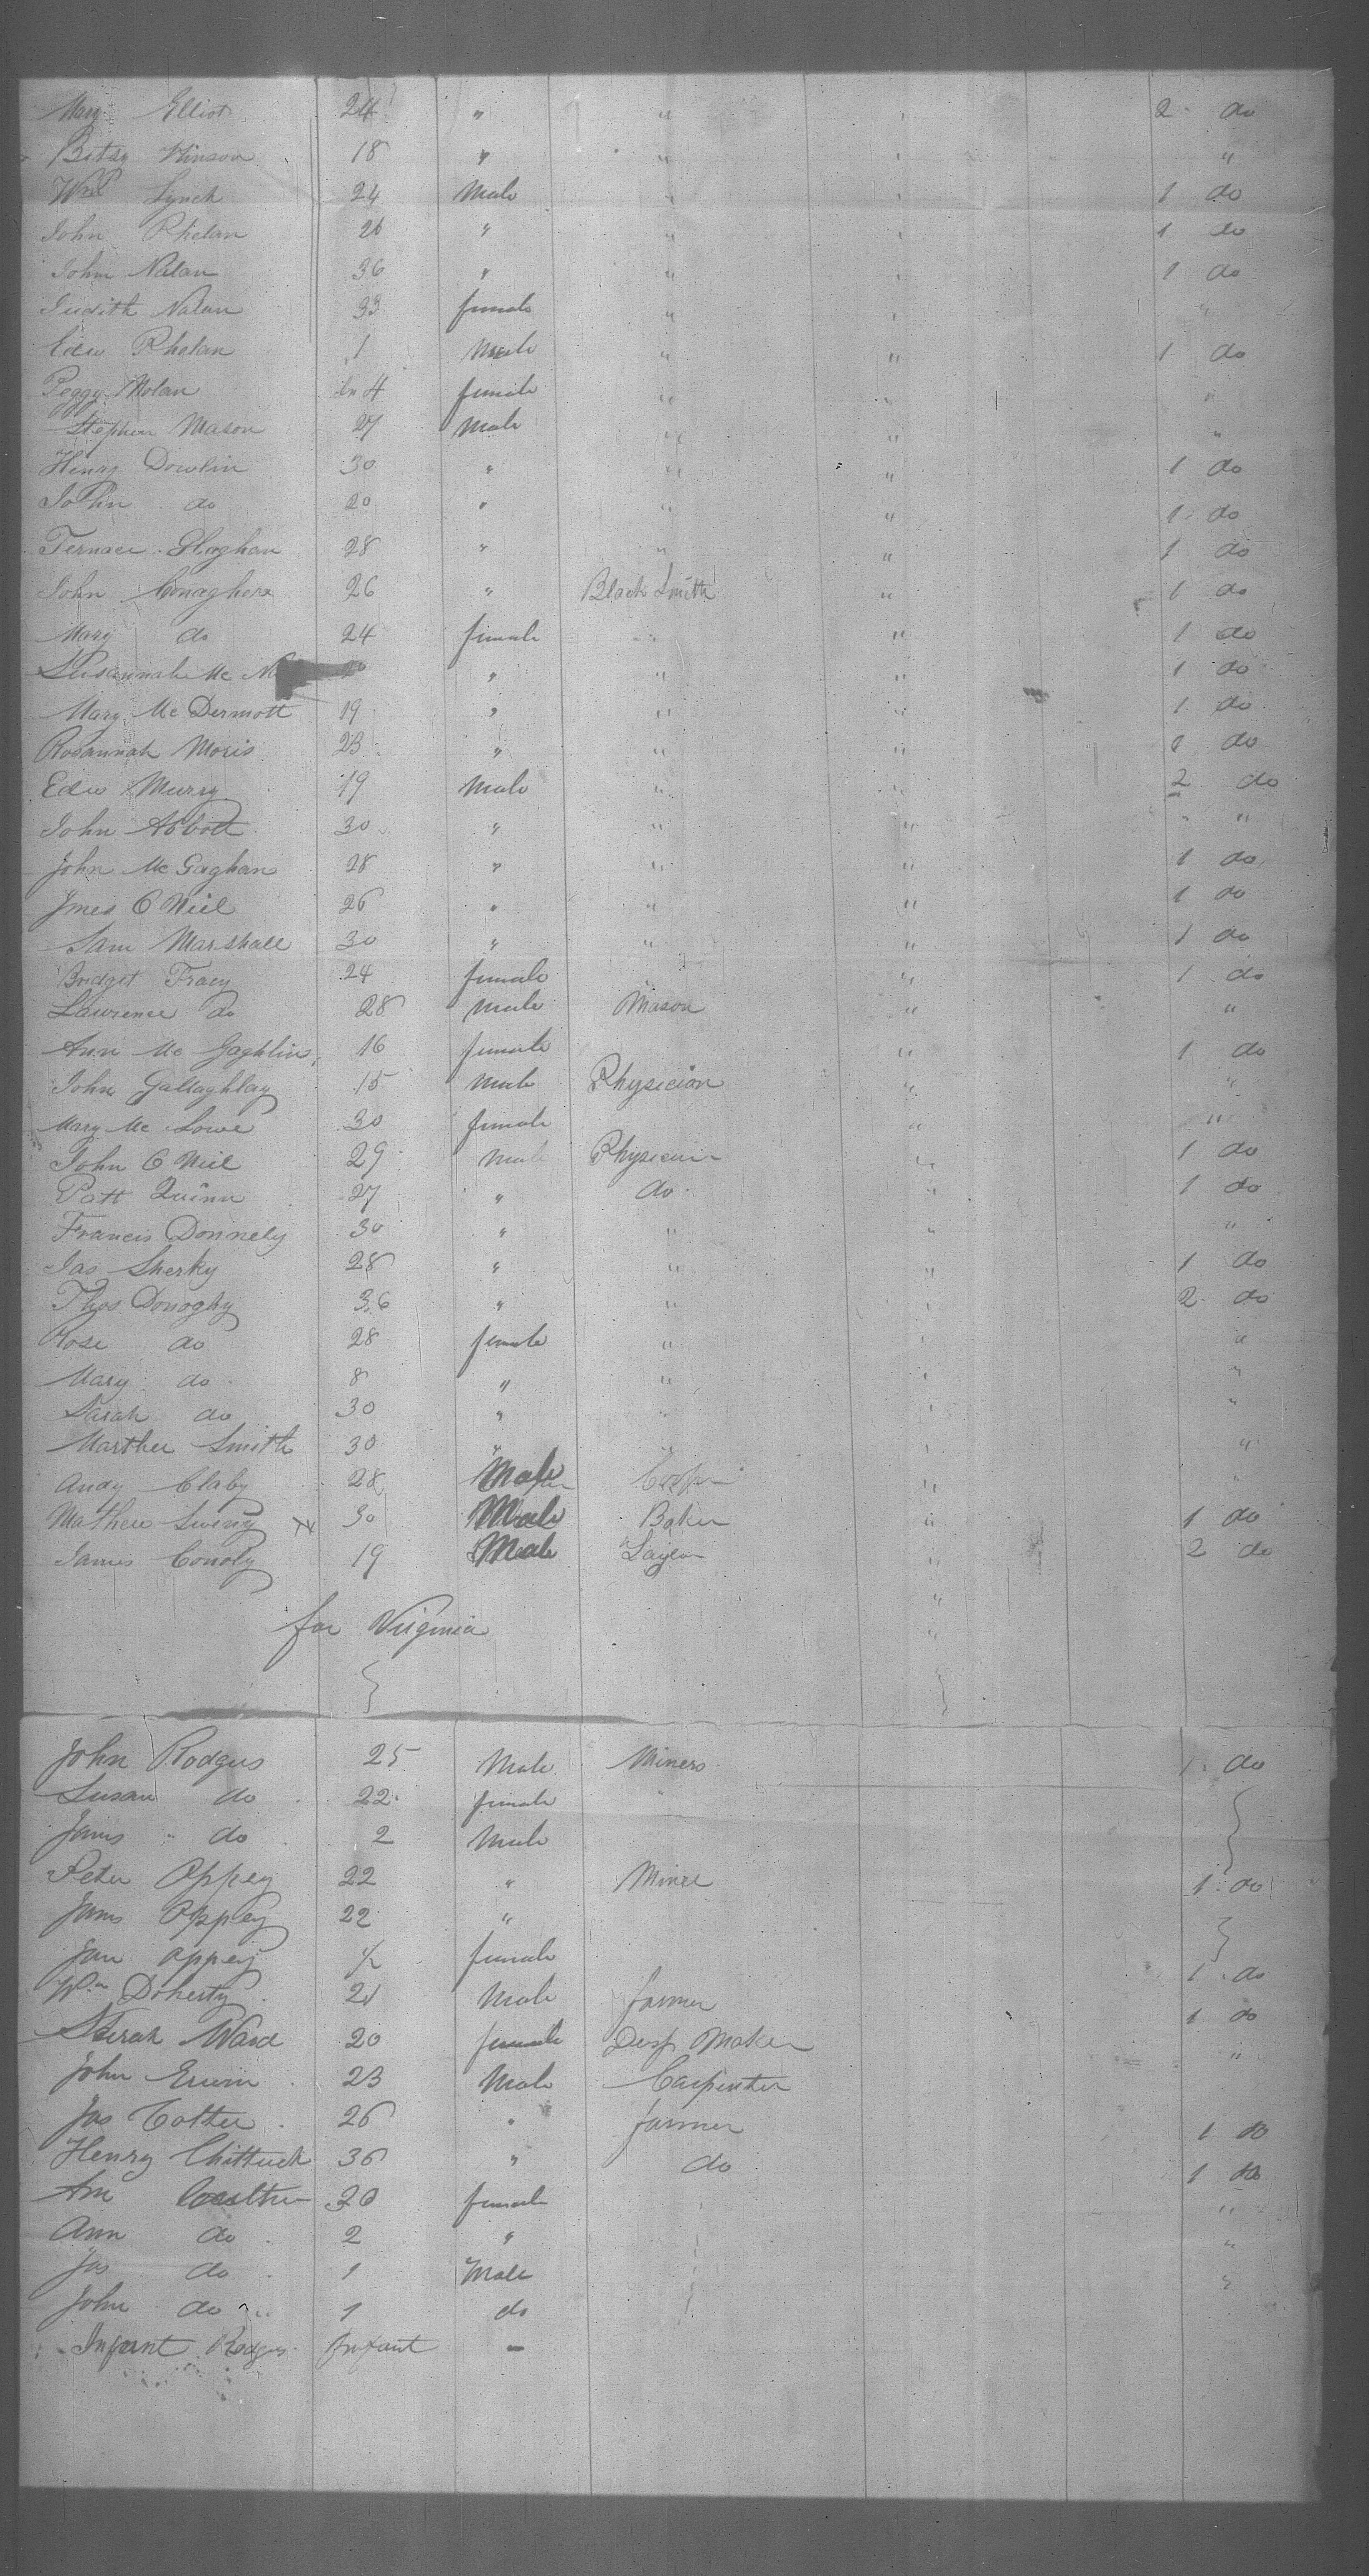 Mary Elliot 24 " " " 2 do
Betsy Hinson 18 " " " "
Wm Lynch 24 Male " " 1 do
John Phelan 26 " " " 1 do
John Nalan 36 " " " 1 do
Judith Nalan 33 female " " "
Edw Phelan 1 Male " " 1 do
Peggy Nolan 4 female " " "
Stephen Mason 27 Male " " "
Henry Dowlin 30 " " " 1 do
John do 20 " " " 1 do
Ternace Glaghan 28 " " " 1 do
John Conaghera 26 " Black Smith " 1 do
Mary do 24 female " " 1 do
Susannah Mc " " " 1 do
Mary Mc Dermott 19 " " " 1 do
Rosannah Moris 23 " " " 1 do
Edw Murry 19 Male " " 2 do
John Abbott 30 " " " " "
John Mc Gaghan 28 " " " 1 do
Jmes O Niel 26 " " " 1 do
Sam Marshall 30 " " " 1 do
Bridget Tracy 24 female " 1 do
Lawrence do 28 Male Mason " "
Ann Mc Gaghlins 16 female " 1 do
John Gallaghlay 15 Male Physician " "
Mary Mc Lowe 30 female " "
John O Niel 29 Male Physician " 1 do
Patt Quinn 27 " do " 1 do
Francis Donnely 30 " " " "
Jas Sherky 28 " " " 1 do
Thos Donoghy 36 " " " 2 do
Rose do 28 female " " "
Mary do 8 " " " "
Sarah do 30 " " " "
Marther Smith 30 " " " "
Andy Claby 28 Male " "
Mathew Sweny 30 Male Baker " 1 do
James Conoly 19 Male " 2 do
"
for Virginia "
John Rodgus 25 Male Miners 1 do
Susan do 22 female "
Jams " do 2 Male
Peter Oppey 22 " Miner 1 do
Jams Oppey 22 "
Jan Oppey female
Wm Doherty 21 Male farmer 1 do
Sarah Ward 20 female Maker 1 do
John Erwin 23 Male Carpenter "
Jas Cotter 26 " farmer 1 do
Henry Chittuck 36 " do 1 do
Ann 20 female "
Ann do 2 " "
Jas do 1 Male "
John do 1 do
Infant Rodgus Infant -